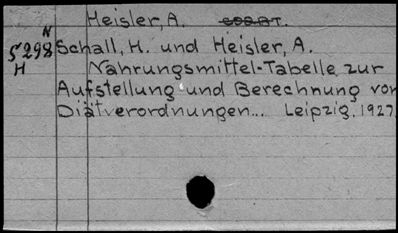 Heisler, A.
N
S298 Schall, H. und Heisler, A.
H Nahrungsmittel-Tabelle zur
Aufstellung und Berechnung von
Diätverordnungen... Leipzig. 1927.